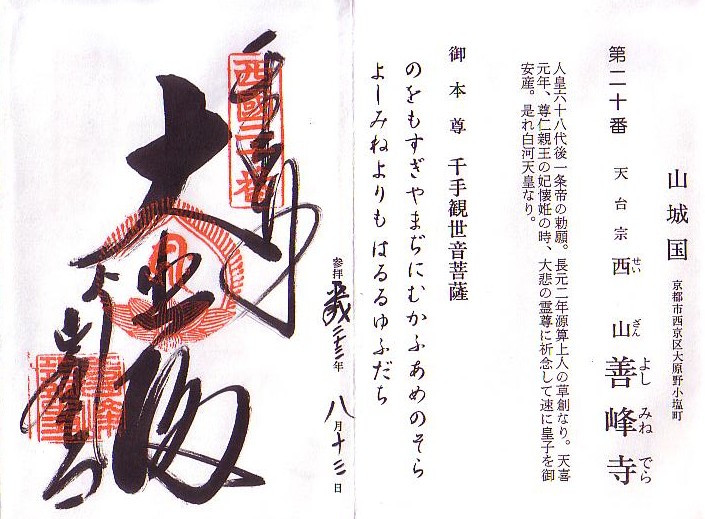 山城国 京都市西京区大原野小塩町
第二十番 天台宗 西山善峰寺
せい ざん よし みね でら
人皇六十八代後一条帝の勅願。長元二年源算上人の草創なり。天喜
元年、尊仁親王の妃懐妊の時、大悲の霊尊に祈念して速に皇子を御
安産。是れ白河天皇なり。
御本尊 千手観世音菩薩
のをもすぎやまぢにむかふあめのそら
よしみねよりもはるるゆふだち
参拝 年 八月十三日
西國二十番
大悲